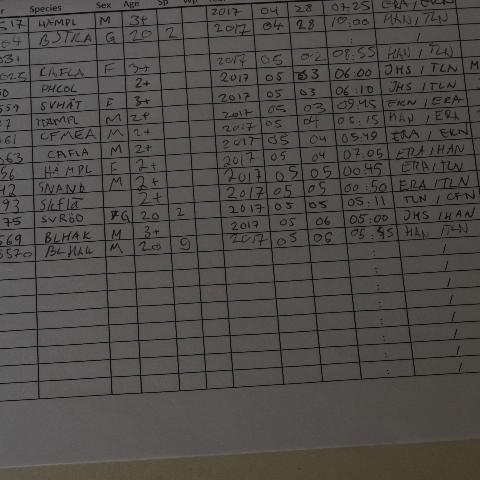 Species Sex Age Sp
517 HAMPL M 3+ 2017 04 28 07:25 ERA / EKN
BJTRA G 20 2 2017 04 28 10:00 HAN / TLN
031
025 CAFLA F 3+ 2017 05 02 08:55 HAN / TLN
PHCOL 2+ 2017 05 03 06:00 JHS / TLN M
559 SVHÄT F 3+ 2017 05 03 06:10 JHS / TLN
HAMPL M 2+ 2017 05 03 09:45 EKN / ERA
061 CFMEA M 2+ 2017 05 04 05:15 HAN / ERA
063 CAFLA M 2+ 2017 05 04 05:49 ERA / EKN
56 HAMPL F 2+ 2017 05 04 07:05 ERA / HAN
42 SNAND M 2+ 2017 05 05 00:45 ERA / TLN
93 2+ 2017 05 05 00:50 ERA / TLN
75 SVRÖD G 20 2 2017 05 05 05:11 TLN /
569 BLHAK M 3+ 2017 05 06 05:00 JHS / HAN
5570 BLHAK M 20 9 2017 05 06 05:55 HAN / TLN